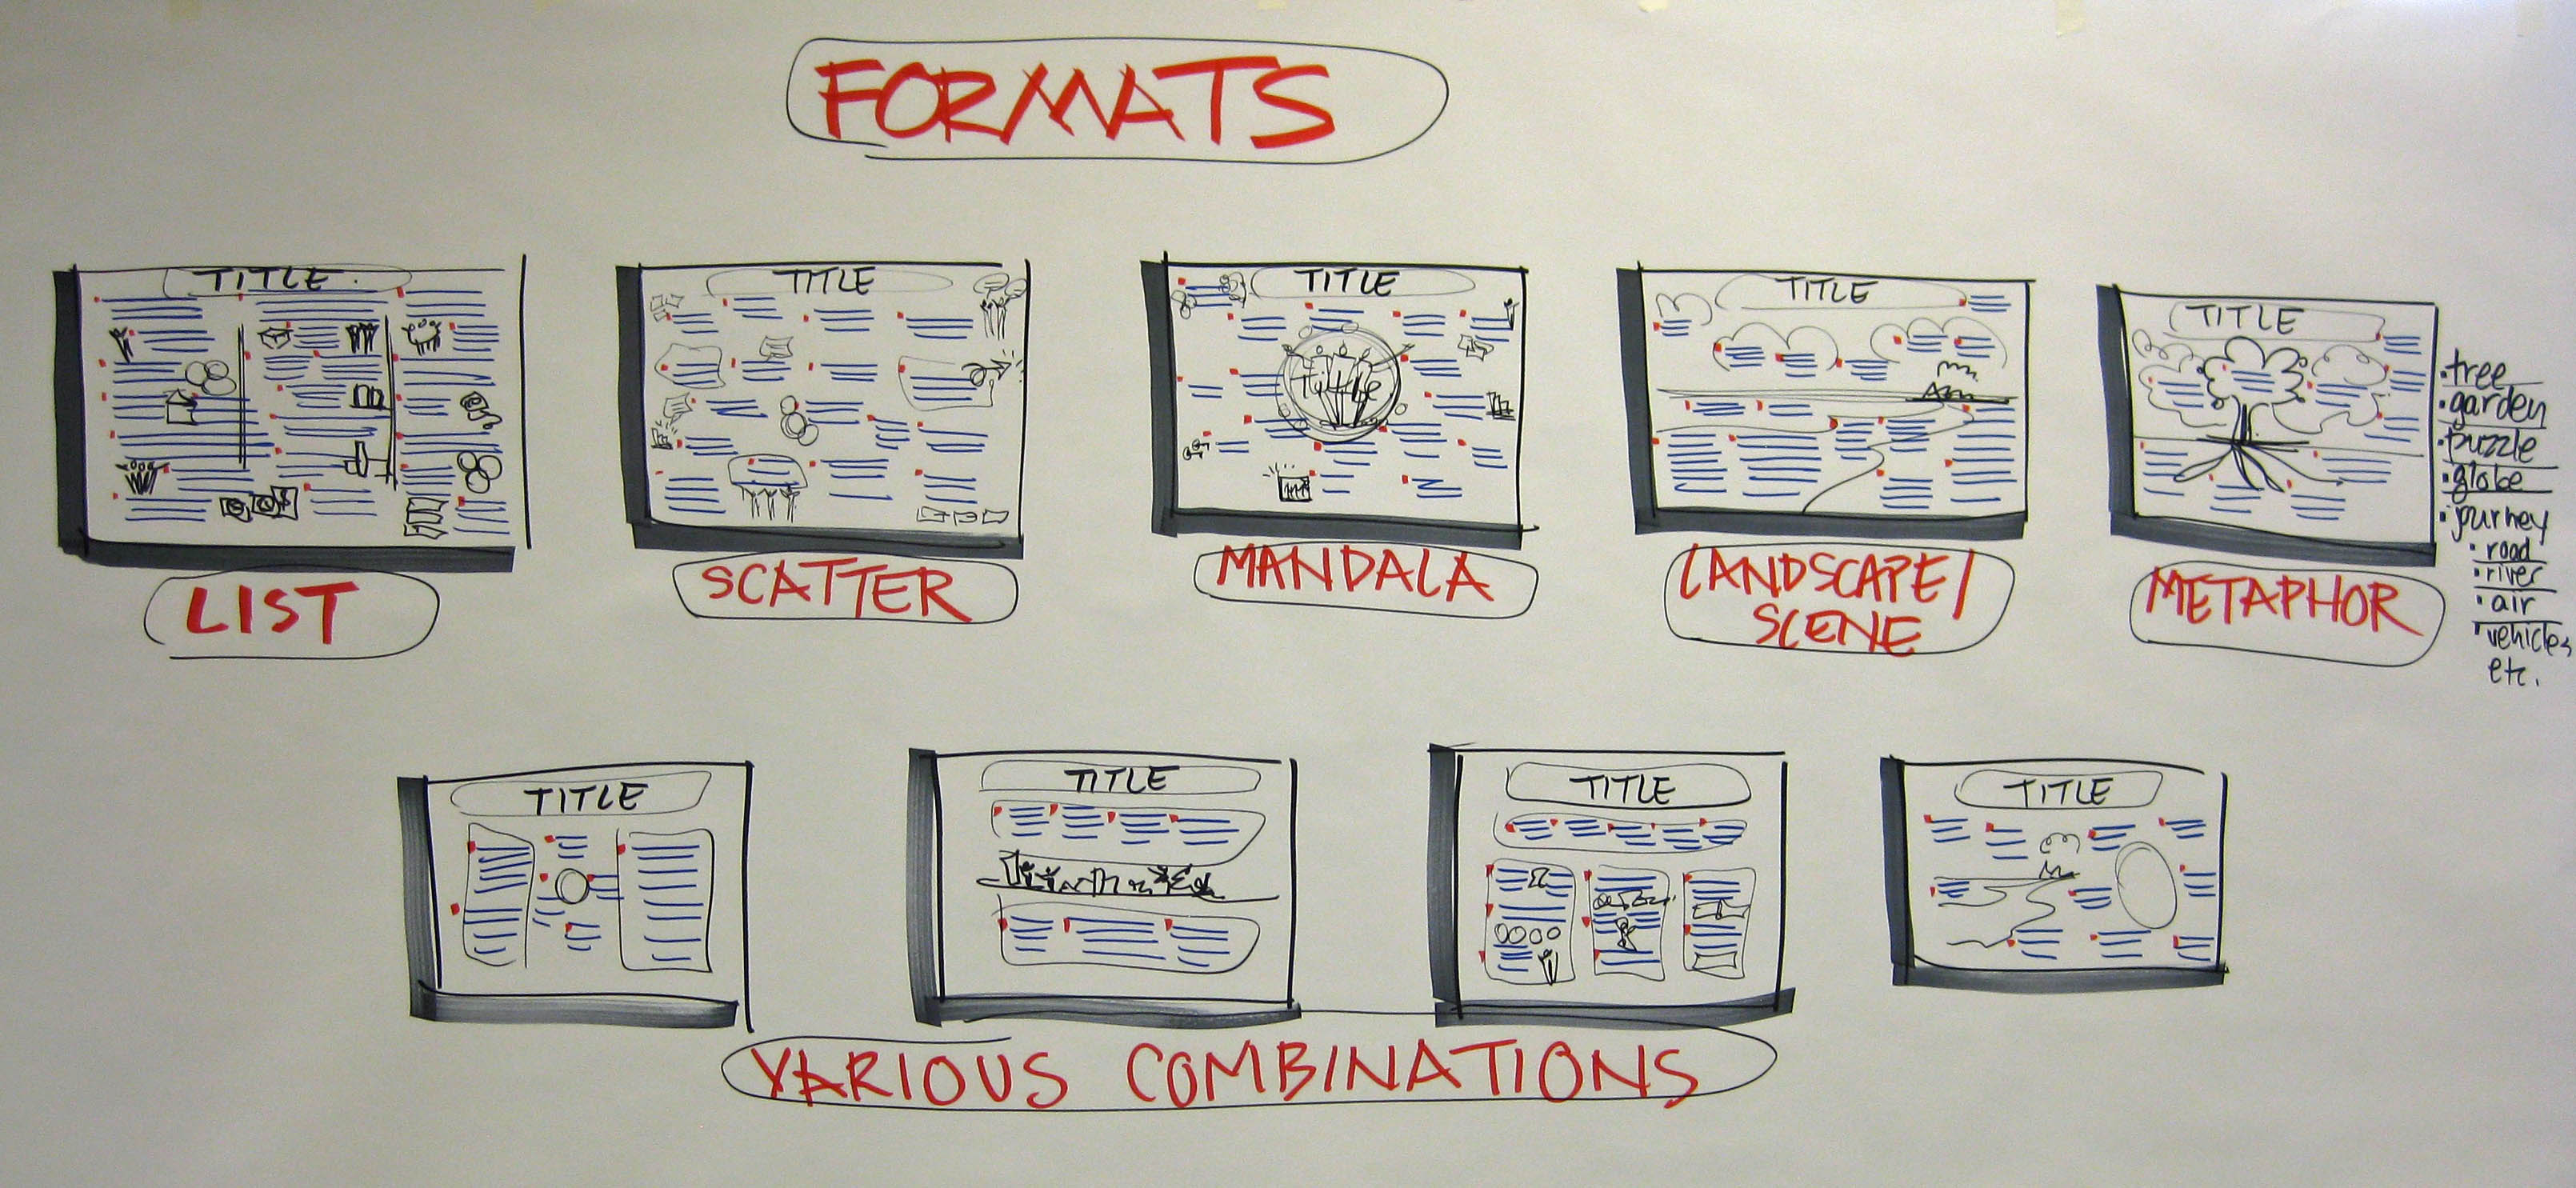 FORMATS
TITLE.
TITLE
TITLE
Title
TITLE
TITLE
• tree
• garden
• puzzle
• globe
• journey
• road
• river
• air
• vehicles
etc.
LIST
SCATTER
MANDALA
LANDSCAPE/
SCENE
METAPHOR
TITLE
TITLE
TITLE
TITLE
VARIOUS COMBINATIONS